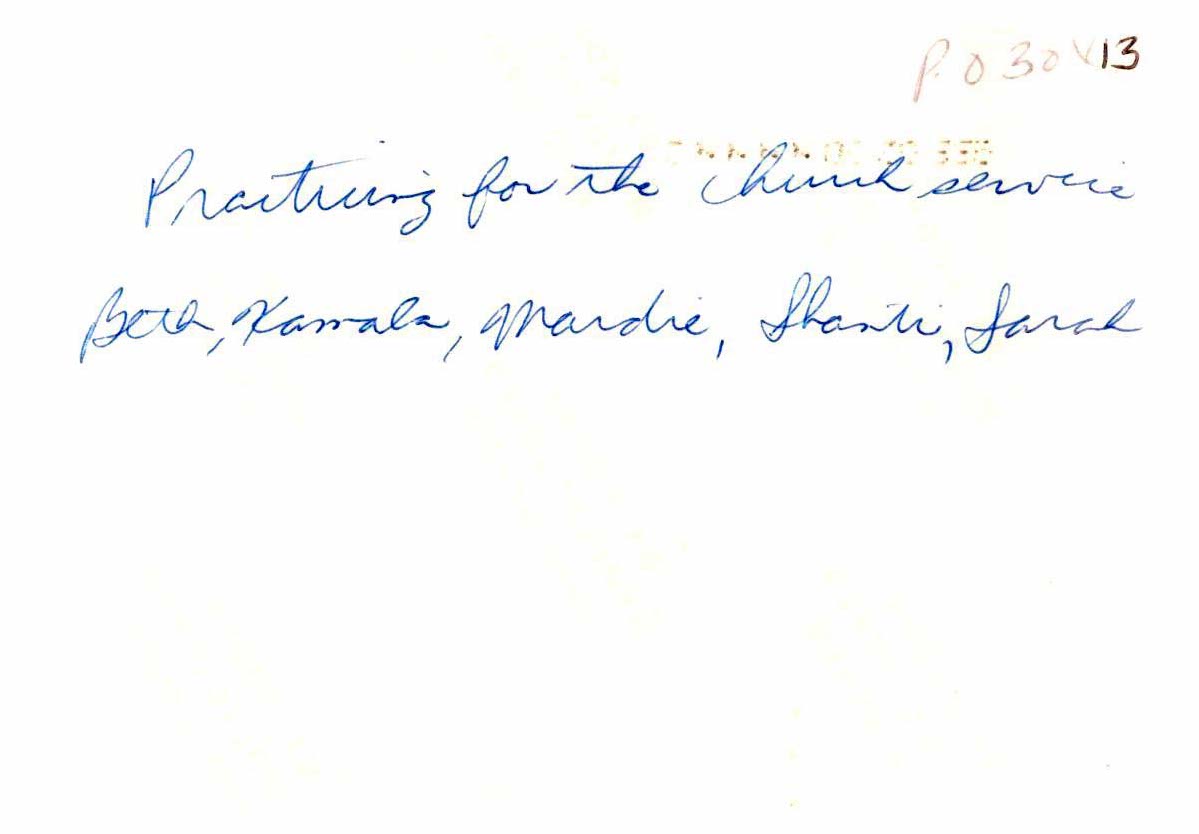 P. 030 13
Practicing for the church service
Beth, Kamala, Mardie, Shanti, Sarah